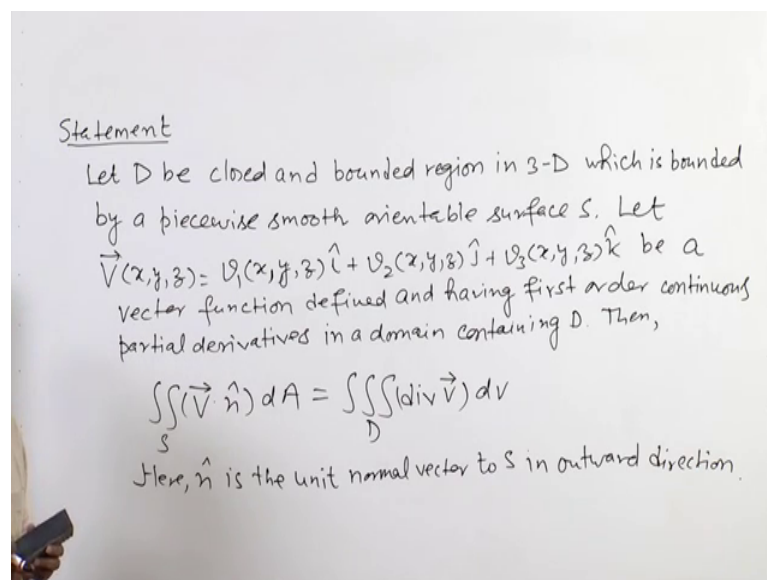 Statement
Let D be closed and bounded region in 3-D which is bounded
by a piecewise smooth orientable surface S. Let
V⃗(x,y,z) = v₁(x,y,z) î + v₂(x,y,z) ĵ + v₃(x,y,z) k̂ be a
vector function defined and having first order continuous
partial derivatives in a domain containing D. Then,
∬_S (V⃗·n̂) dA = ∭_D (div V⃗) dv
Here, n̂ is the unit normal vector to S in outward direction.